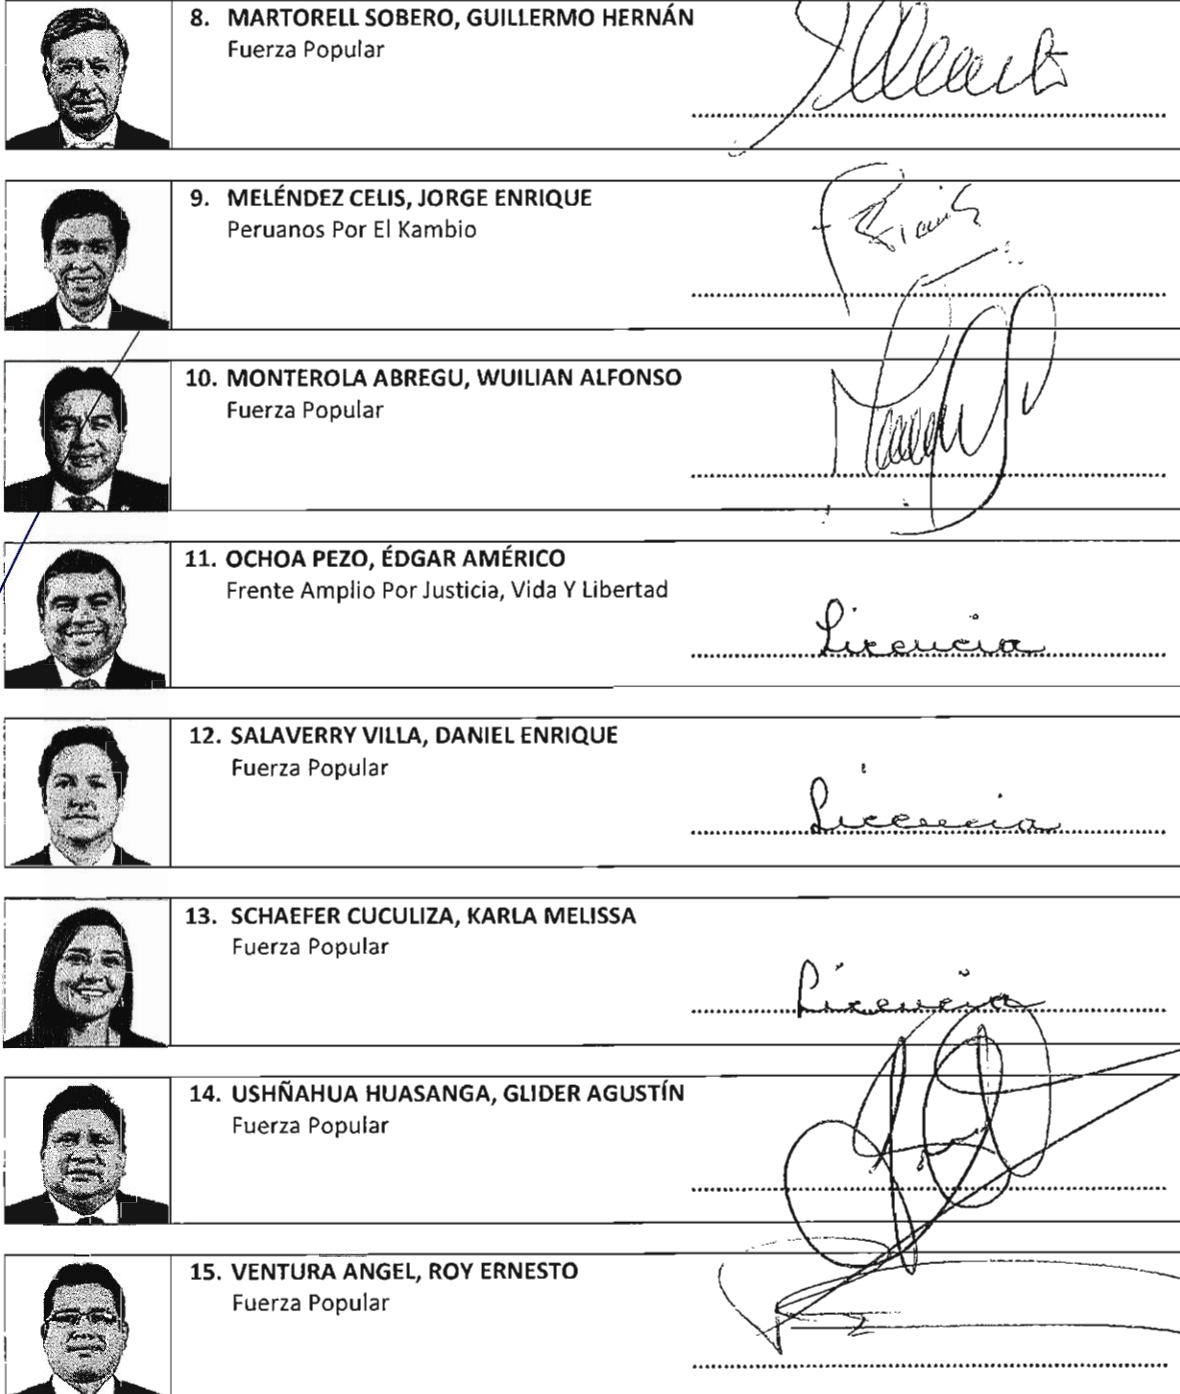 8. MARTORELL SOBERO, GUILLERMO HERNÁN
Fuerza Popular
9. MELÉNDEZ CELIS, JORGE ENRIQUE
Peruanos Por El Kambio
10. MONTEROLA ABREGU, WUILIAN ALFONSO
Fuerza Popular
11. OCHOA PEZO, ÉDGAR AMÉRICO
Frente Amplio Por Justicia, Vida Y Libertad
Licencia
12. SALAVERRY VILLA, DANIEL ENRIQUE
Fuerza Popular
Licencia
13. SCHAEFER CUCULIZA, KARLA MELISSA
Fuerza Popular
Licencia
14. USHÑAHUA HUASANGA, GLIDER AGUSTÍN
Fuerza Popular
15. VENTURA ANGEL, ROY ERNESTO
Fuerza Popular